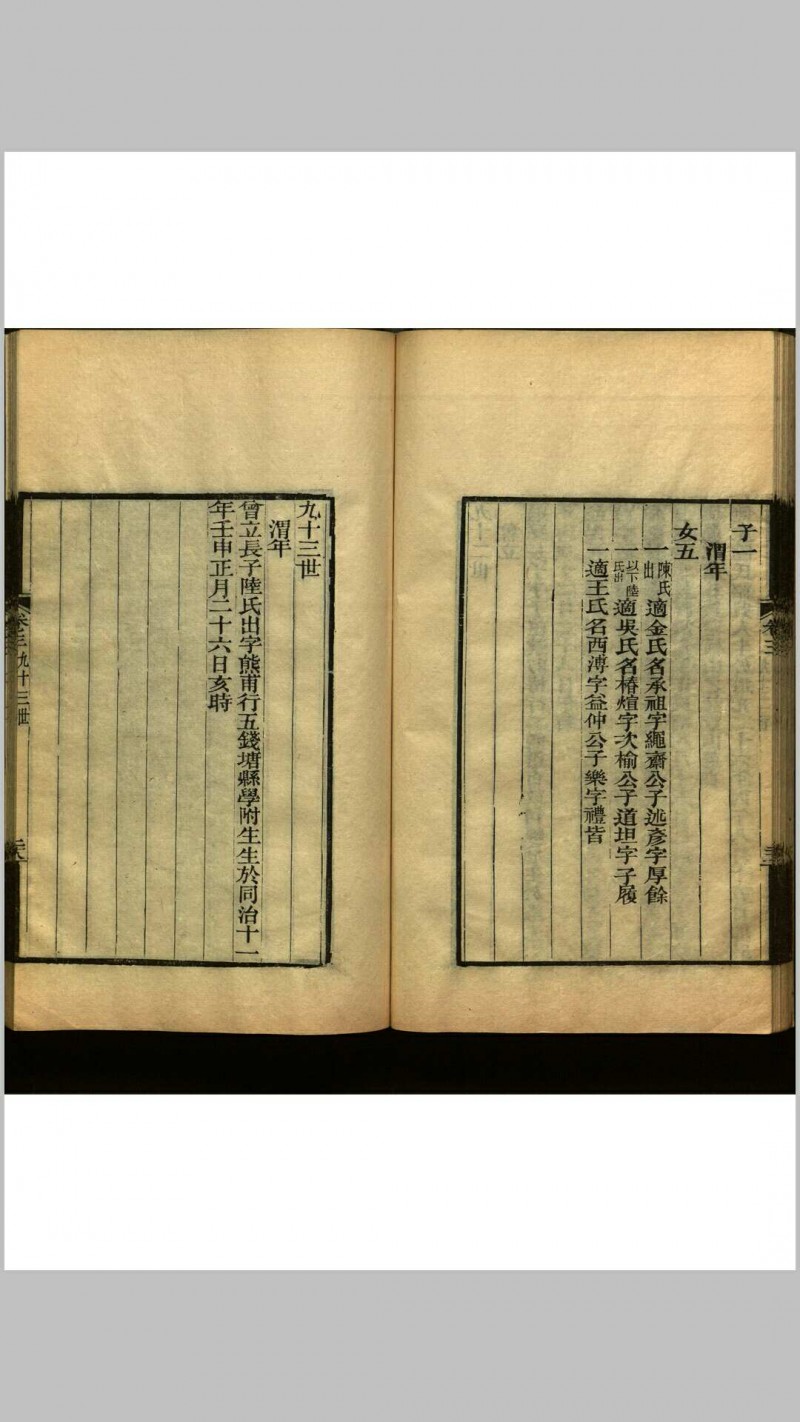 子一
渭年
女五
一陳氏出適金氏名承祖字繩齋公子述彥字厚餘
一以下陸氏出適吳氏名椿煊字次榆公子道坦字子履
一適王氏名西溥字益仲公子樂字禮皆
卷三
九十三世
渭年
曾立長子陸氏出字熊甫行五錢塘縣學附生生於同治十一
年壬申正月二十六日亥時
卷三九十三世